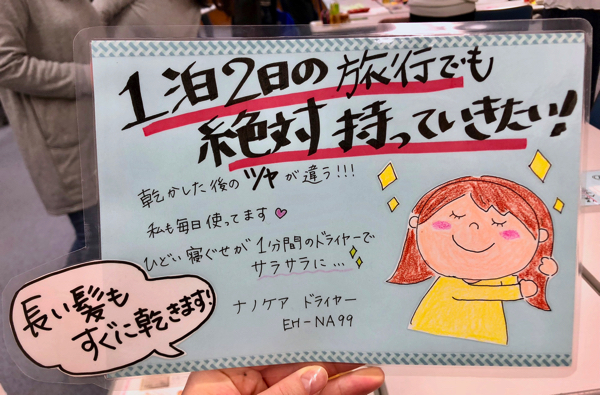 1泊2日の旅行でも
絶対持っていきたい!
乾かした後のツヤが違う!!!
私も毎日使ってます
ひどい寝ぐせが1分間のドライヤーで
サラサラに...
ナノケア ドライヤー
EH-NA99
長い髪も
すぐに乾きます!